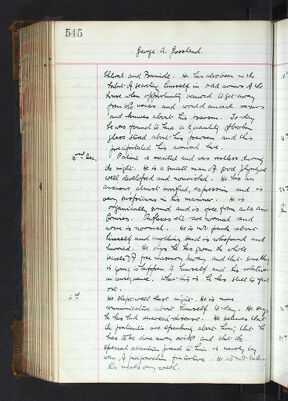 545
George A. Gosland.
Chloral and Bromide. He has also been in the
habit of secreting himself in odd corners of the
house when opportunity occurred to get away
from the voices and would conceal razors
and knives about his person. To day
he was found to have a quantity of broken
glass stored about his person and this
precipitated his arrival here.
5th Dec. Patient is excited and was restless during
the night. He is a small man of good physique
well developed and nourished. He has an
anxious almost terrified, expression and is
very suspicious in his manner. He is
organically sound and is free from cuts and
bruises. Reflexes are normal and
urine is normal. He is not frank about
himself and anything said is whispered and
He says he has given the whole
secrets of free masonry away and that something
is going to happen to himself and his relatives
in consequence. What this is he has still to figure
out.
6th He slept well last night. He is more
communicative about himself to day. He says
he has had venereal disease. He believes that
the patients are speaking about him; that he
has to be done away with and that the
special attention paid to him is merely by
way of preparation for He is not taking
his meals very well.